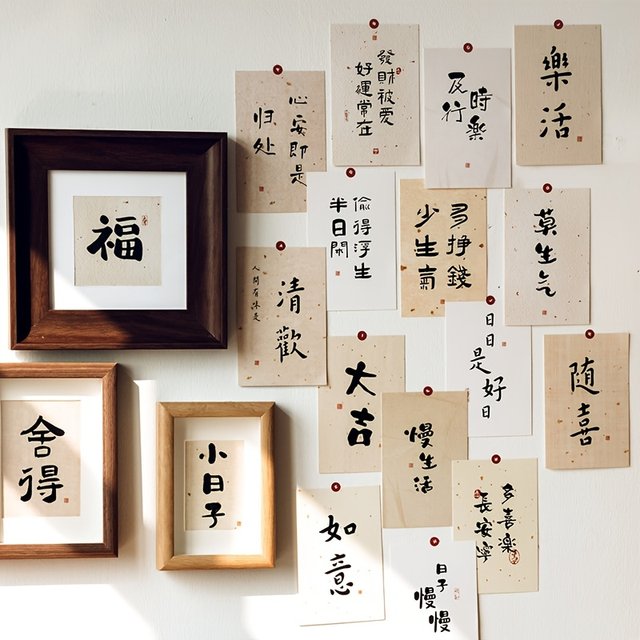 福
舍得
小日子
心安即是
归处
發財被愛
好運常在
及時
行樂
樂活
偷得浮生
半日閑
多掙錢
少生氣
莫生气
人間有味是
清歡
日日是好日
大吉
随喜
慢生活
如意
多喜樂
長安寧
日子
慢慢